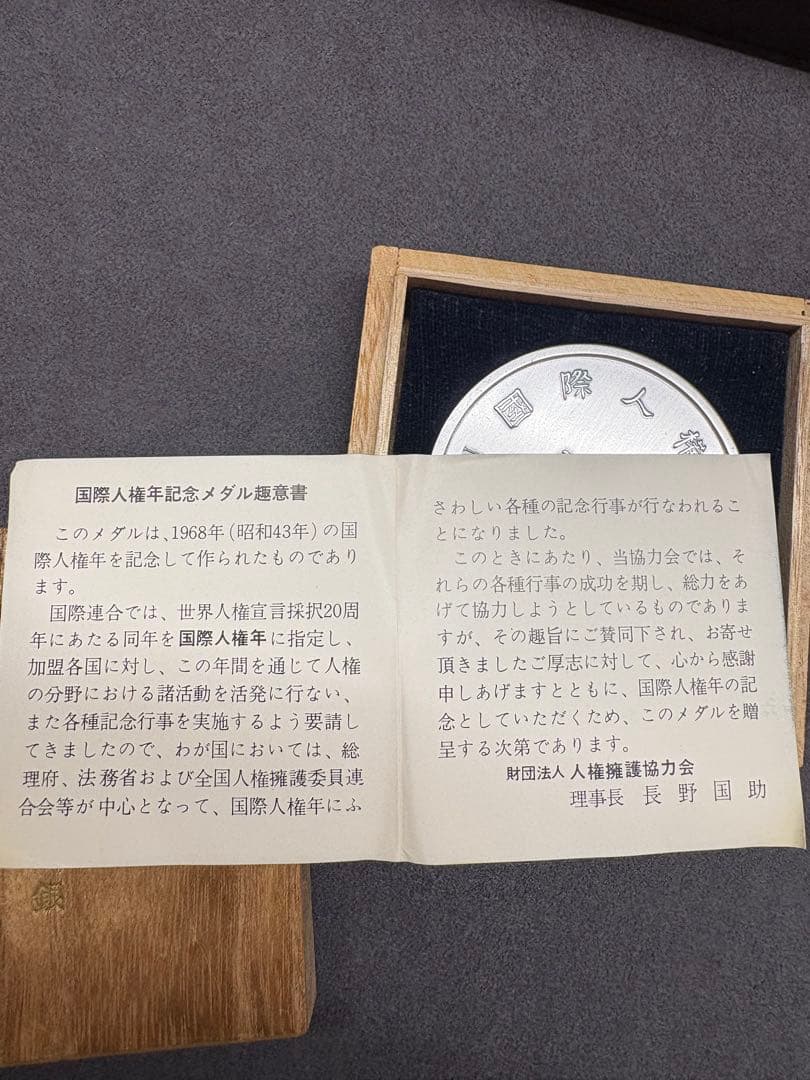 國際人權
国際人権年記念メダル趣意書
このメダルは、1968年(昭和43年)の国
際人権年を記念して作られたものであり
ます。
国際連合では、世界人権宣言採択20周
年にあたる同年を国際人権年に指定し、
加盟各国に対し、この年間を通じて人権
の分野における諸活動を活発に行ない、
また各種記念行事を実施するよう要請し
てきましたので、わが国においては、総
理府、法務省および全国人権擁護委員連
合会等が中心となって、国際人権年にふ
さわしい各種の記念行事が行なわれるこ
とになりました。
このときにあたり、当協力会では、そ
れらの各種行事の成功を期し、総力をあ
げて協力しようとしているものでありま
すが、その趣旨にご賛同下され、お寄せ
頂きましたご厚志に対して、心から感謝
申しあげますとともに、国際人権年の記
念としていただくため、このメダルを贈
呈する次第であります。
財団法人 人権擁護協力会
理事長 長野国助
銀